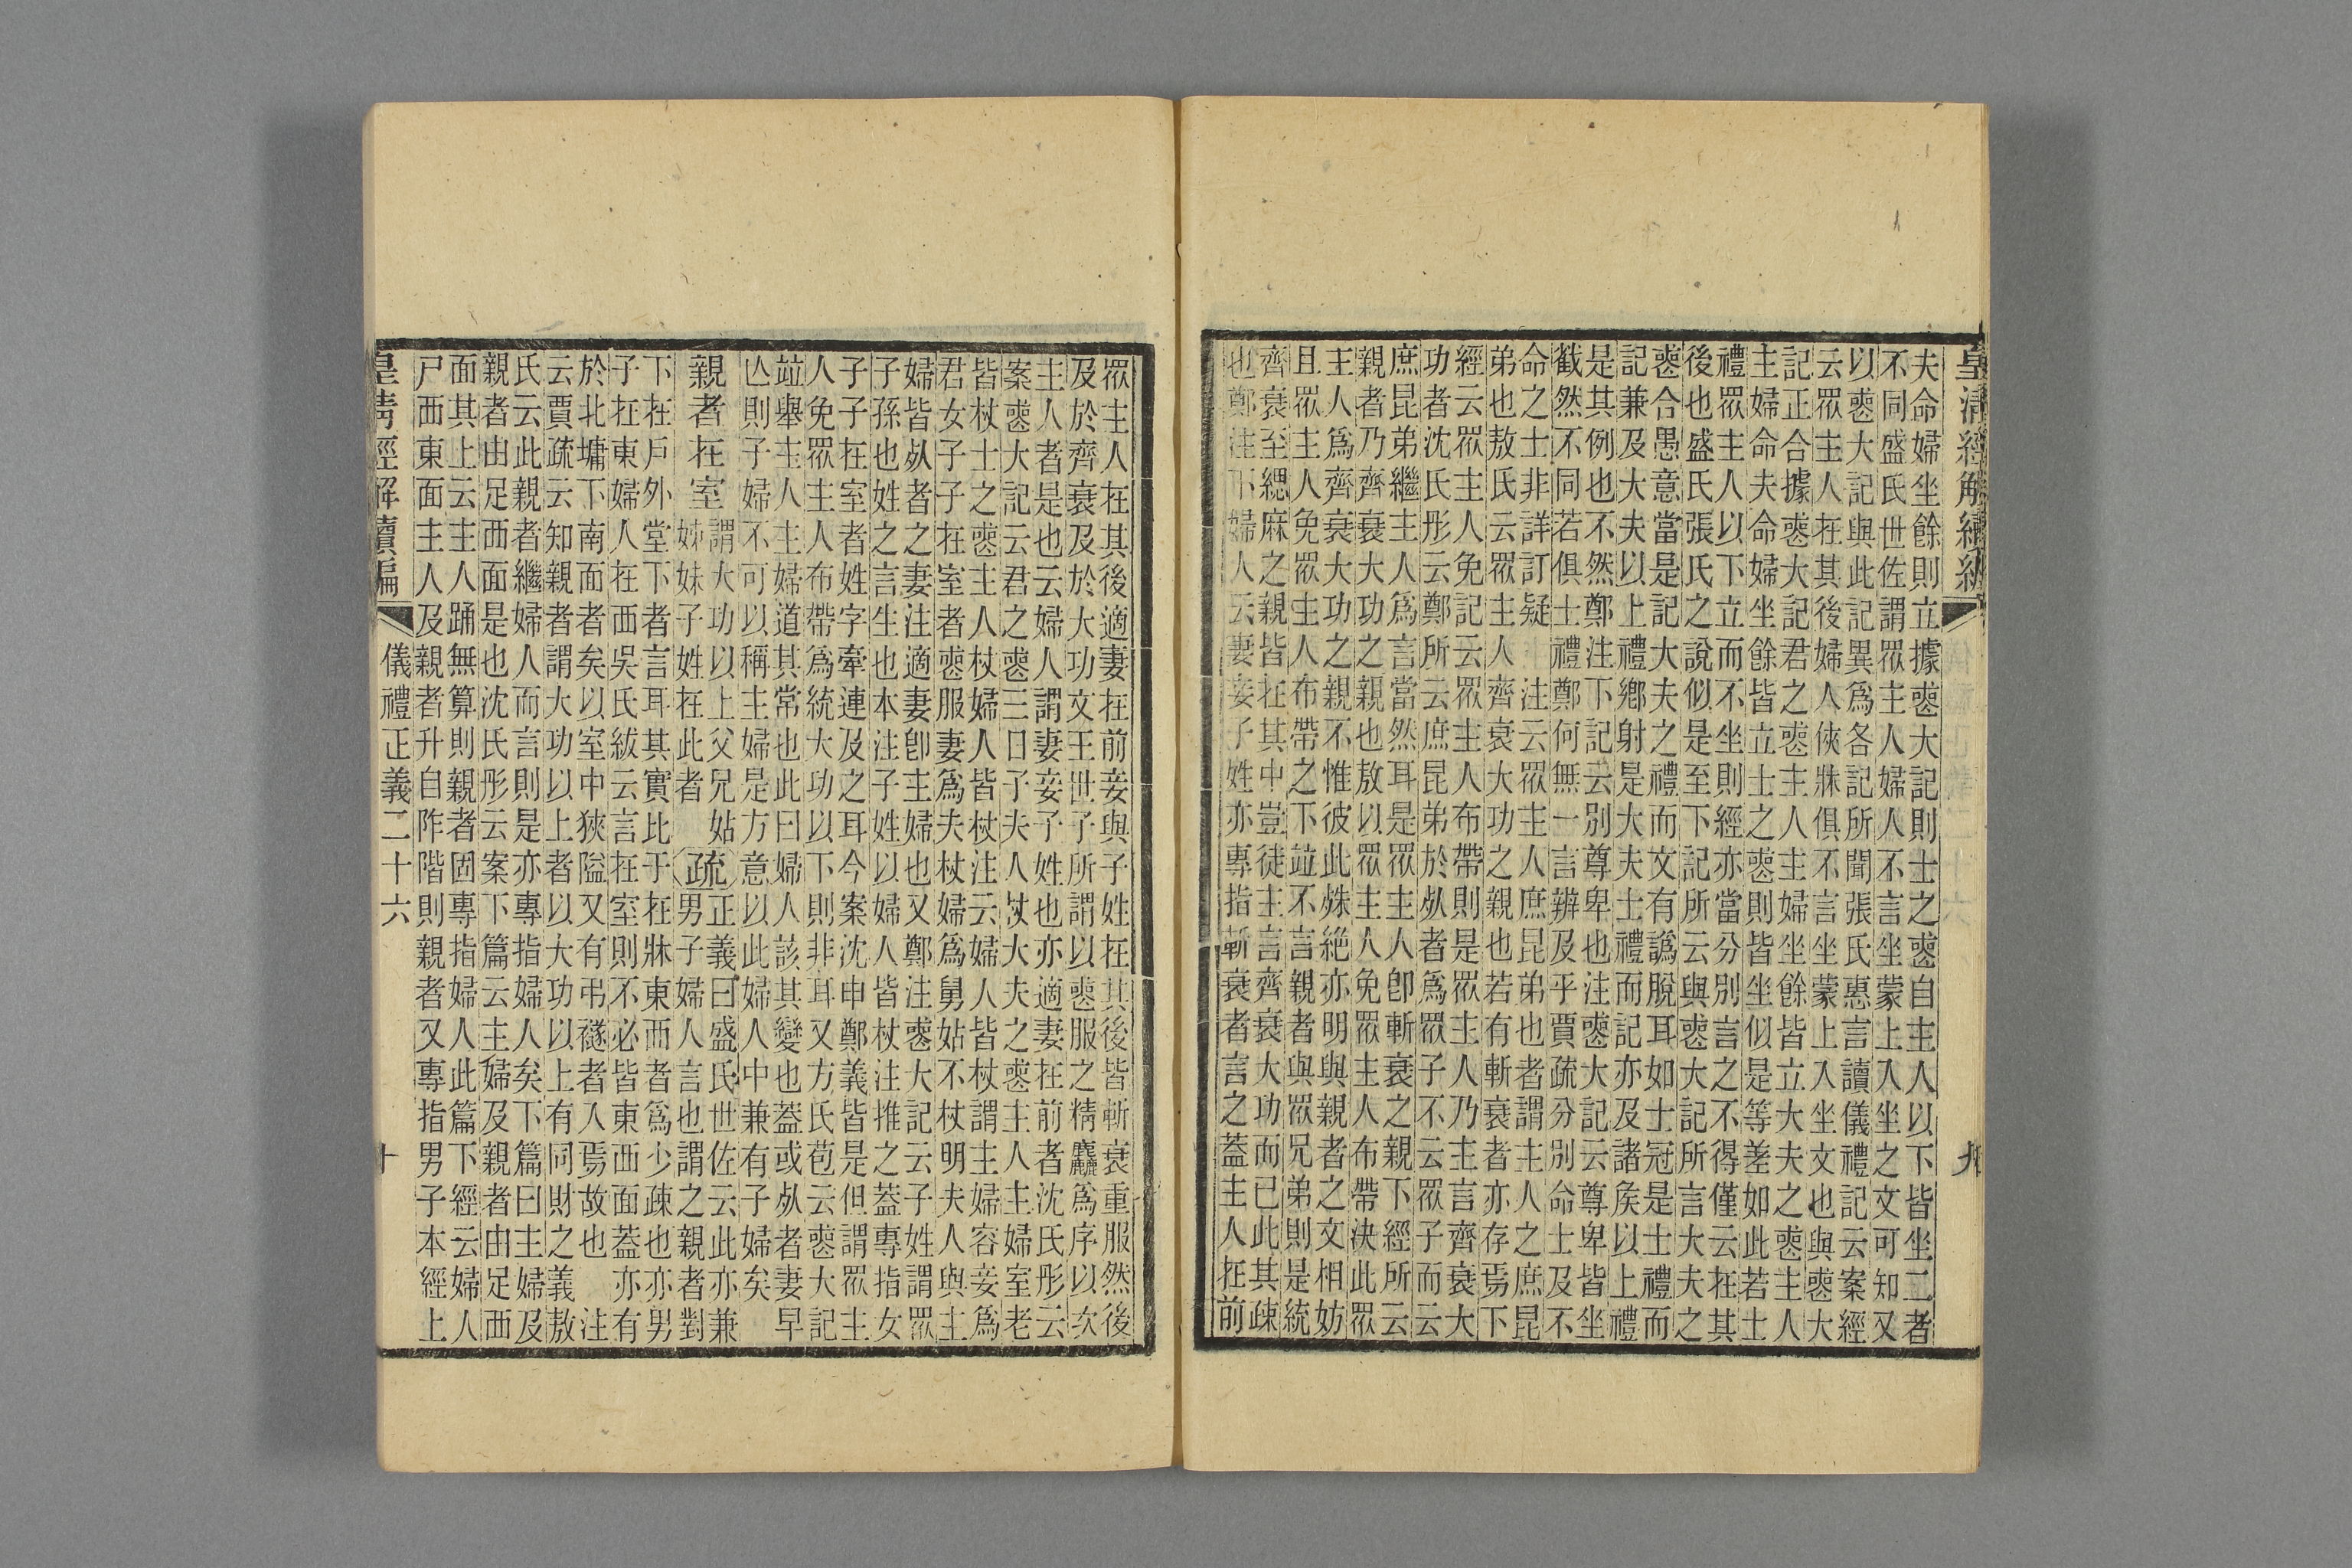 皇清經解續編
九
夫命婦坐餘則立據䘮大記則士之䘮自主人以下皆坐二者
不同盛氏世佐謂眾主人婦人不言坐蒙上入坐之文可知又
以䘮大記與此記異爲各記所聞張氏惠言讀儀禮記云案經
云眾主人在其後婦人俠牀俱不言坐蒙上入坐文也與䘮大
記正合據䘮大記君之䘮主人主婦坐餘皆立大夫之䘮主人
主婦命夫命婦坐餘皆立士之䘮則皆坐似是等差如此若士
禮眾主人以下立而不坐則經亦當分別言之不得僅云在其
後也盛氏張氏之說似是至下記所云與䘮大記所言大夫之
䘮合愚意當是記大夫之禮而文有譌脫耳如士冠是士禮而
記兼及大夫以上禮鄉射是大夫士禮而記亦及諸矦以上禮
是其例也不然鄭注下記云別尊卑也注䘮大記云尊卑皆坐
截然不同若俱士禮鄭何無一言辨及乎賈疏分別命士及不
命之士非詳訂疑　注云眾主人庶昆弟也者謂主人之庶昆
弟也敖氏云眾主人齊衰大功之親也若有斬衰者亦存焉下
經云眾主人免記云眾主人布帶則是眾主人乃主言齊衰大
功者沈氏彤云鄭所云庶昆弟於㱾者爲眾子不云眾子而云
庶昆弟繼主人爲言當然耳是眾主人卽斬衰之親下經所云
親者乃齊衰大功之親也敖以眾主人免眾主人布帶決此眾
主人爲齊衰大功之親不惟彼此殊絕亦明與與親者之文相妨
且眾主人免眾主人布帶之下竝不言親者與眾兄弟則是統
齊衰至緦麻之親皆在其中豈徒主言齊衰大功而已此其疎
也鄭注下婦人云妻妾子姓亦專指斬衰者言之蓋主人在前
眾主人在其後適妻在前妾與子姓在其後皆斬衰重服然後
及於齊衰及於大功文王世子所謂以䘮服之精麤爲序以次
主人者是也云婦人謂妻妾子姓也亦適妻在前者沈氏彤云
案䘮大記云君之䘮三日子夫人杖大夫之䘮主人主婦室老
皆杖士之䘮主人杖婦人皆杖注云婦人皆杖謂主婦容妾爲
君女子子在室者䘮服妻爲夫杖婦爲舅姑不杖明夫人與主
婦皆㱾者之妻注適妻卽主婦也又鄭注䘮大記云子姓謂眾
子孫也姓之言生也本注子姓以婦人皆杖注推之蓋專指女
子子在室者姓字牽連及之耳今案沈申鄭義皆是但謂眾主
人免眾主人布帶爲統大功以下則非耳又方氏苞云䘮大記
竝舉主人主婦道其常也此曰婦人該其變也蓋或㱾者妻早
亾則子婦不可以稱主婦是方意以此婦人中兼有子婦矣
親者在室　謂大功以上父兄姑姊妹子姓在此者　疏正義曰盛氏世佐云此亦兼男子婦人言也謂之親者對
下在戶外堂下者言耳其實此于在牀東而者爲少疎也亦男
子在東婦人在西吳氏紱云言在室則不必皆東西面蓋亦有
於北墉下南面者矣以室中狹隘又有弔襚者入焉故也　注
云賈疏云知親者謂大功以上者以大功以上有同財之義敖
氏云此親者繼婦人而言則是亦專指婦人矣下篇曰主婦及
親者由足西面是也沈氏彤云案下篇云主婦及親者由足西
面其上云主人踊無算則親者固專指婦人此篇下經云婦人
尸西東面主人及親者升自阼階則親者又專指男子本經上
皇清經解續編
儀禮正義二十六
十